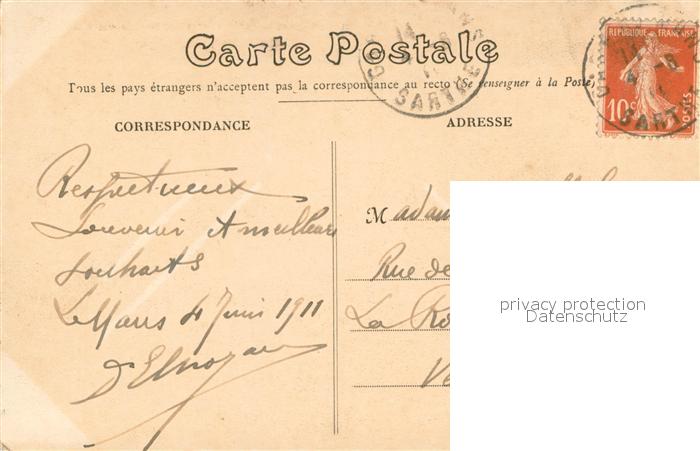 Carte Postale
Tous les pays étrangers n'acceptent pas la correspondance au recto (Se renseigner à la Poste)
CORRESPONDANCE
ADRESSE
REPUBLIQUE FRANÇAISE
10c
POSTES
SARTHE
SARTHE
Respectueux
Souvenir et meilleurs
souhaits
Le Mans 4 Juin 1911
Madam
Rue de
La Ro
Ve
privacy protection
Datenschutz